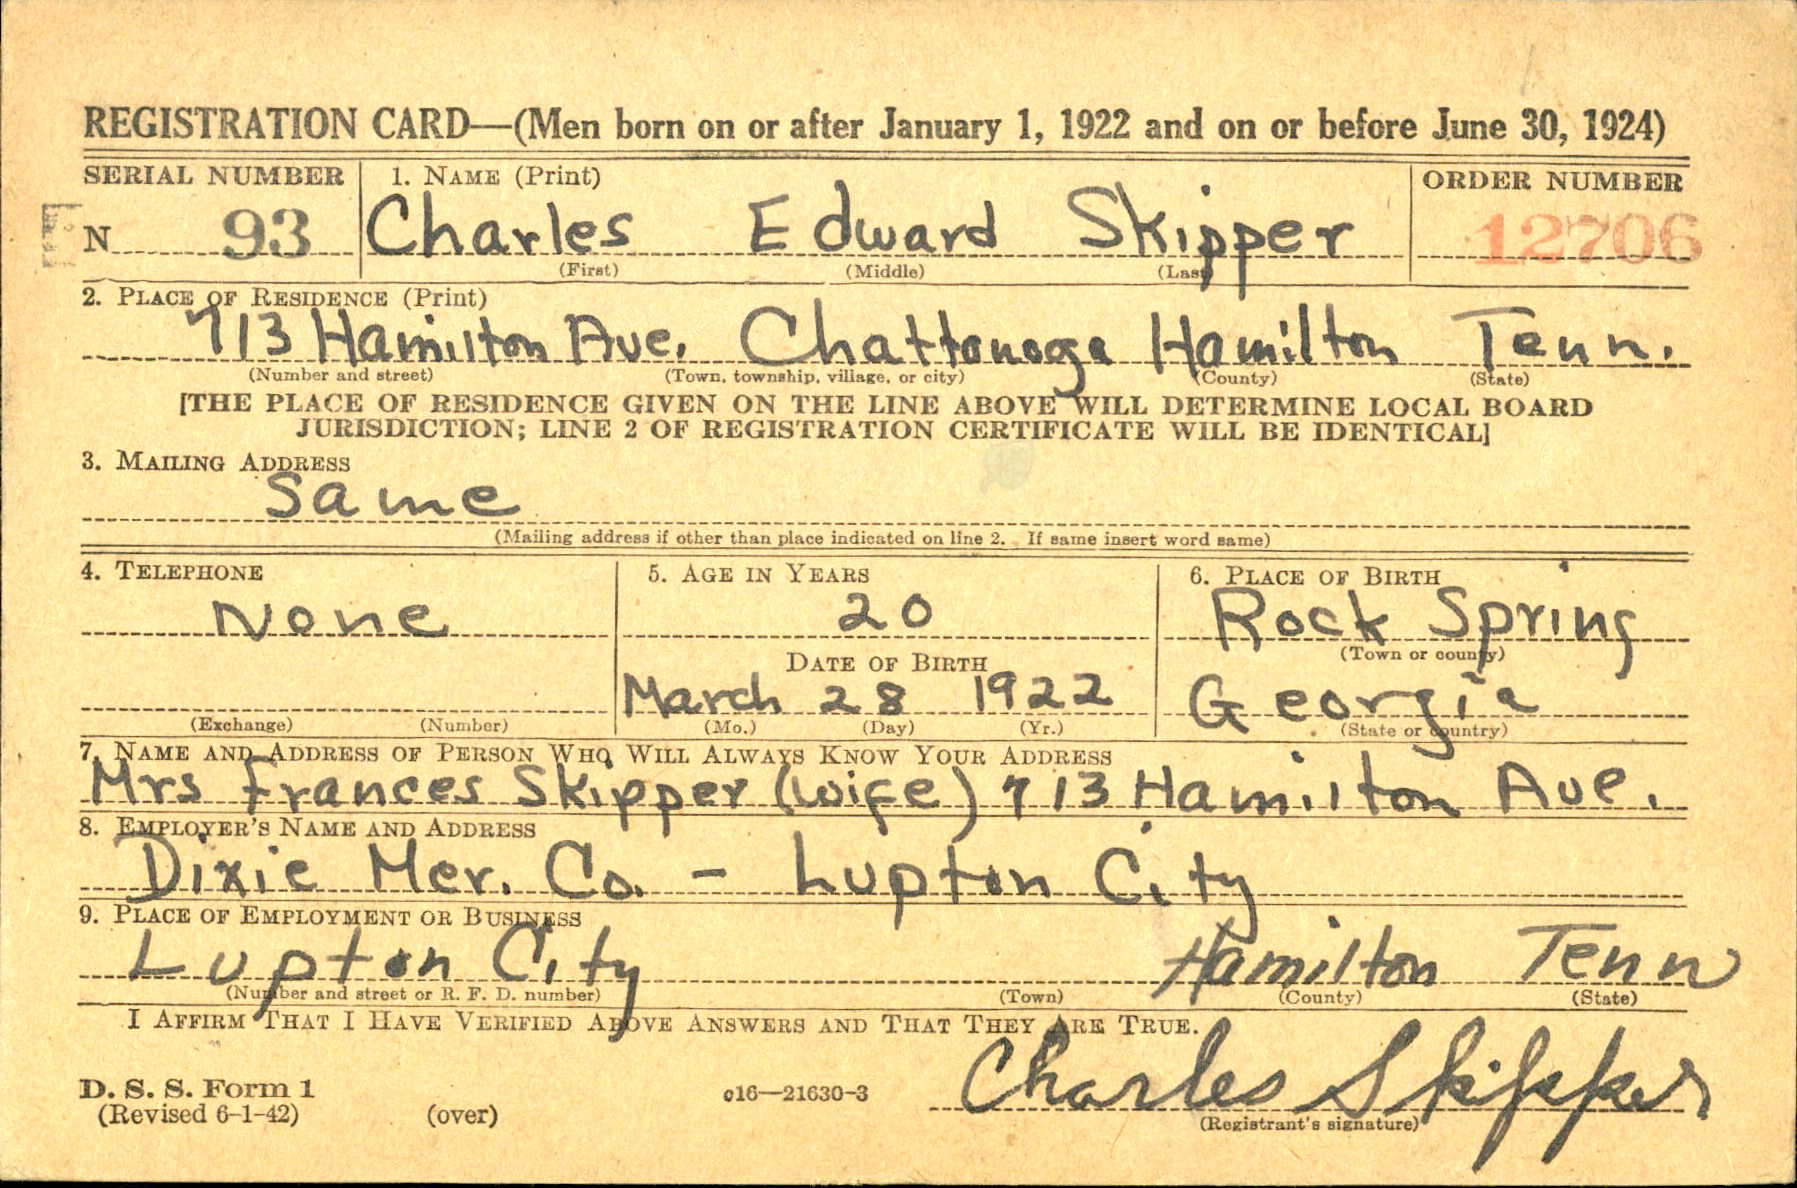 REGISTRATION CARD—(Men born on or after January 1, 1922 and on or before June 30, 1924)
SERIAL NUMBER 1. NAME (Print) ORDER NUMBER
N 93 Charles Edward Skipper 12706
(First) (Middle) (Last)
2. PLACE OF RESIDENCE (Print)
713 Hamilton Ave. Chattanooga Hamilton Tenn.
(Number and street) (Town, township, village, or city) (County) (State)
[THE PLACE OF RESIDENCE GIVEN ON THE LINE ABOVE WILL DETERMINE LOCAL BOARD
JURISDICTION; LINE 2 OF REGISTRATION CERTIFICATE WILL BE IDENTICAL]
3. MAILING ADDRESS
Same
(Mailing address if other than place indicated on line 2. If same insert word same)
4. TELEPHONE 5. AGE IN YEARS 6. PLACE OF BIRTH
None 20 Rock Spring
DATE OF BIRTH (Town or county)
March 28 1922 Georgia
(Exchange) (Number) (Mo.) (Day) (Yr.) (State or country)
7. NAME AND ADDRESS OF PERSON WHO WILL ALWAYS KNOW YOUR ADDRESS
Mrs Frances Skipper (wife) 713 Hamilton Ave.
8. EMPLOYER'S NAME AND ADDRESS
Dixie Mer. Co. - Lupton City
9. PLACE OF EMPLOYMENT OR BUSINESS
Lupton City Hamilton Tenn
(Number and street or R. F. D. number) (Town) (County) (State)
I AFFIRM THAT I HAVE VERIFIED ABOVE ANSWERS AND THAT THEY ARE TRUE.
D. S. S. Form 1 c16—21630-3 Charles Skipper
(Revised 6-1-42) (over) (Registrant's signature)